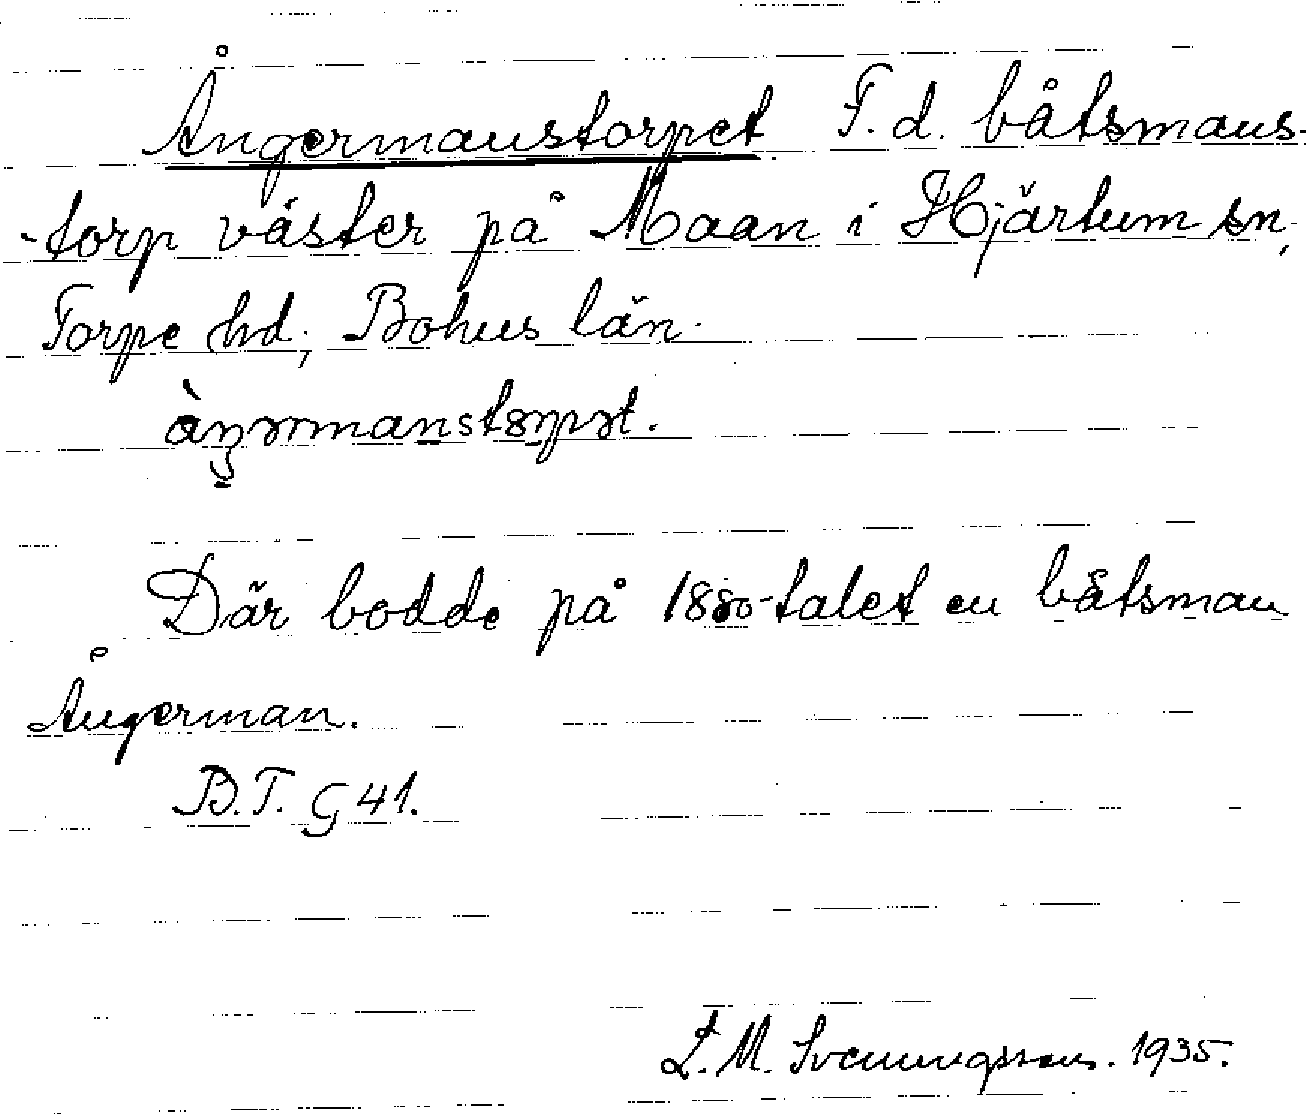 Ångermanstorpet F.d. båtsmans-
-torp väster på Maan i Hjärtum sn,
Torpe hd, Bohus län.
Där bodde på 1880-talet en båtsman
Ångerman.
B.T. G 41.
L. M. Svenungsson. 1935.